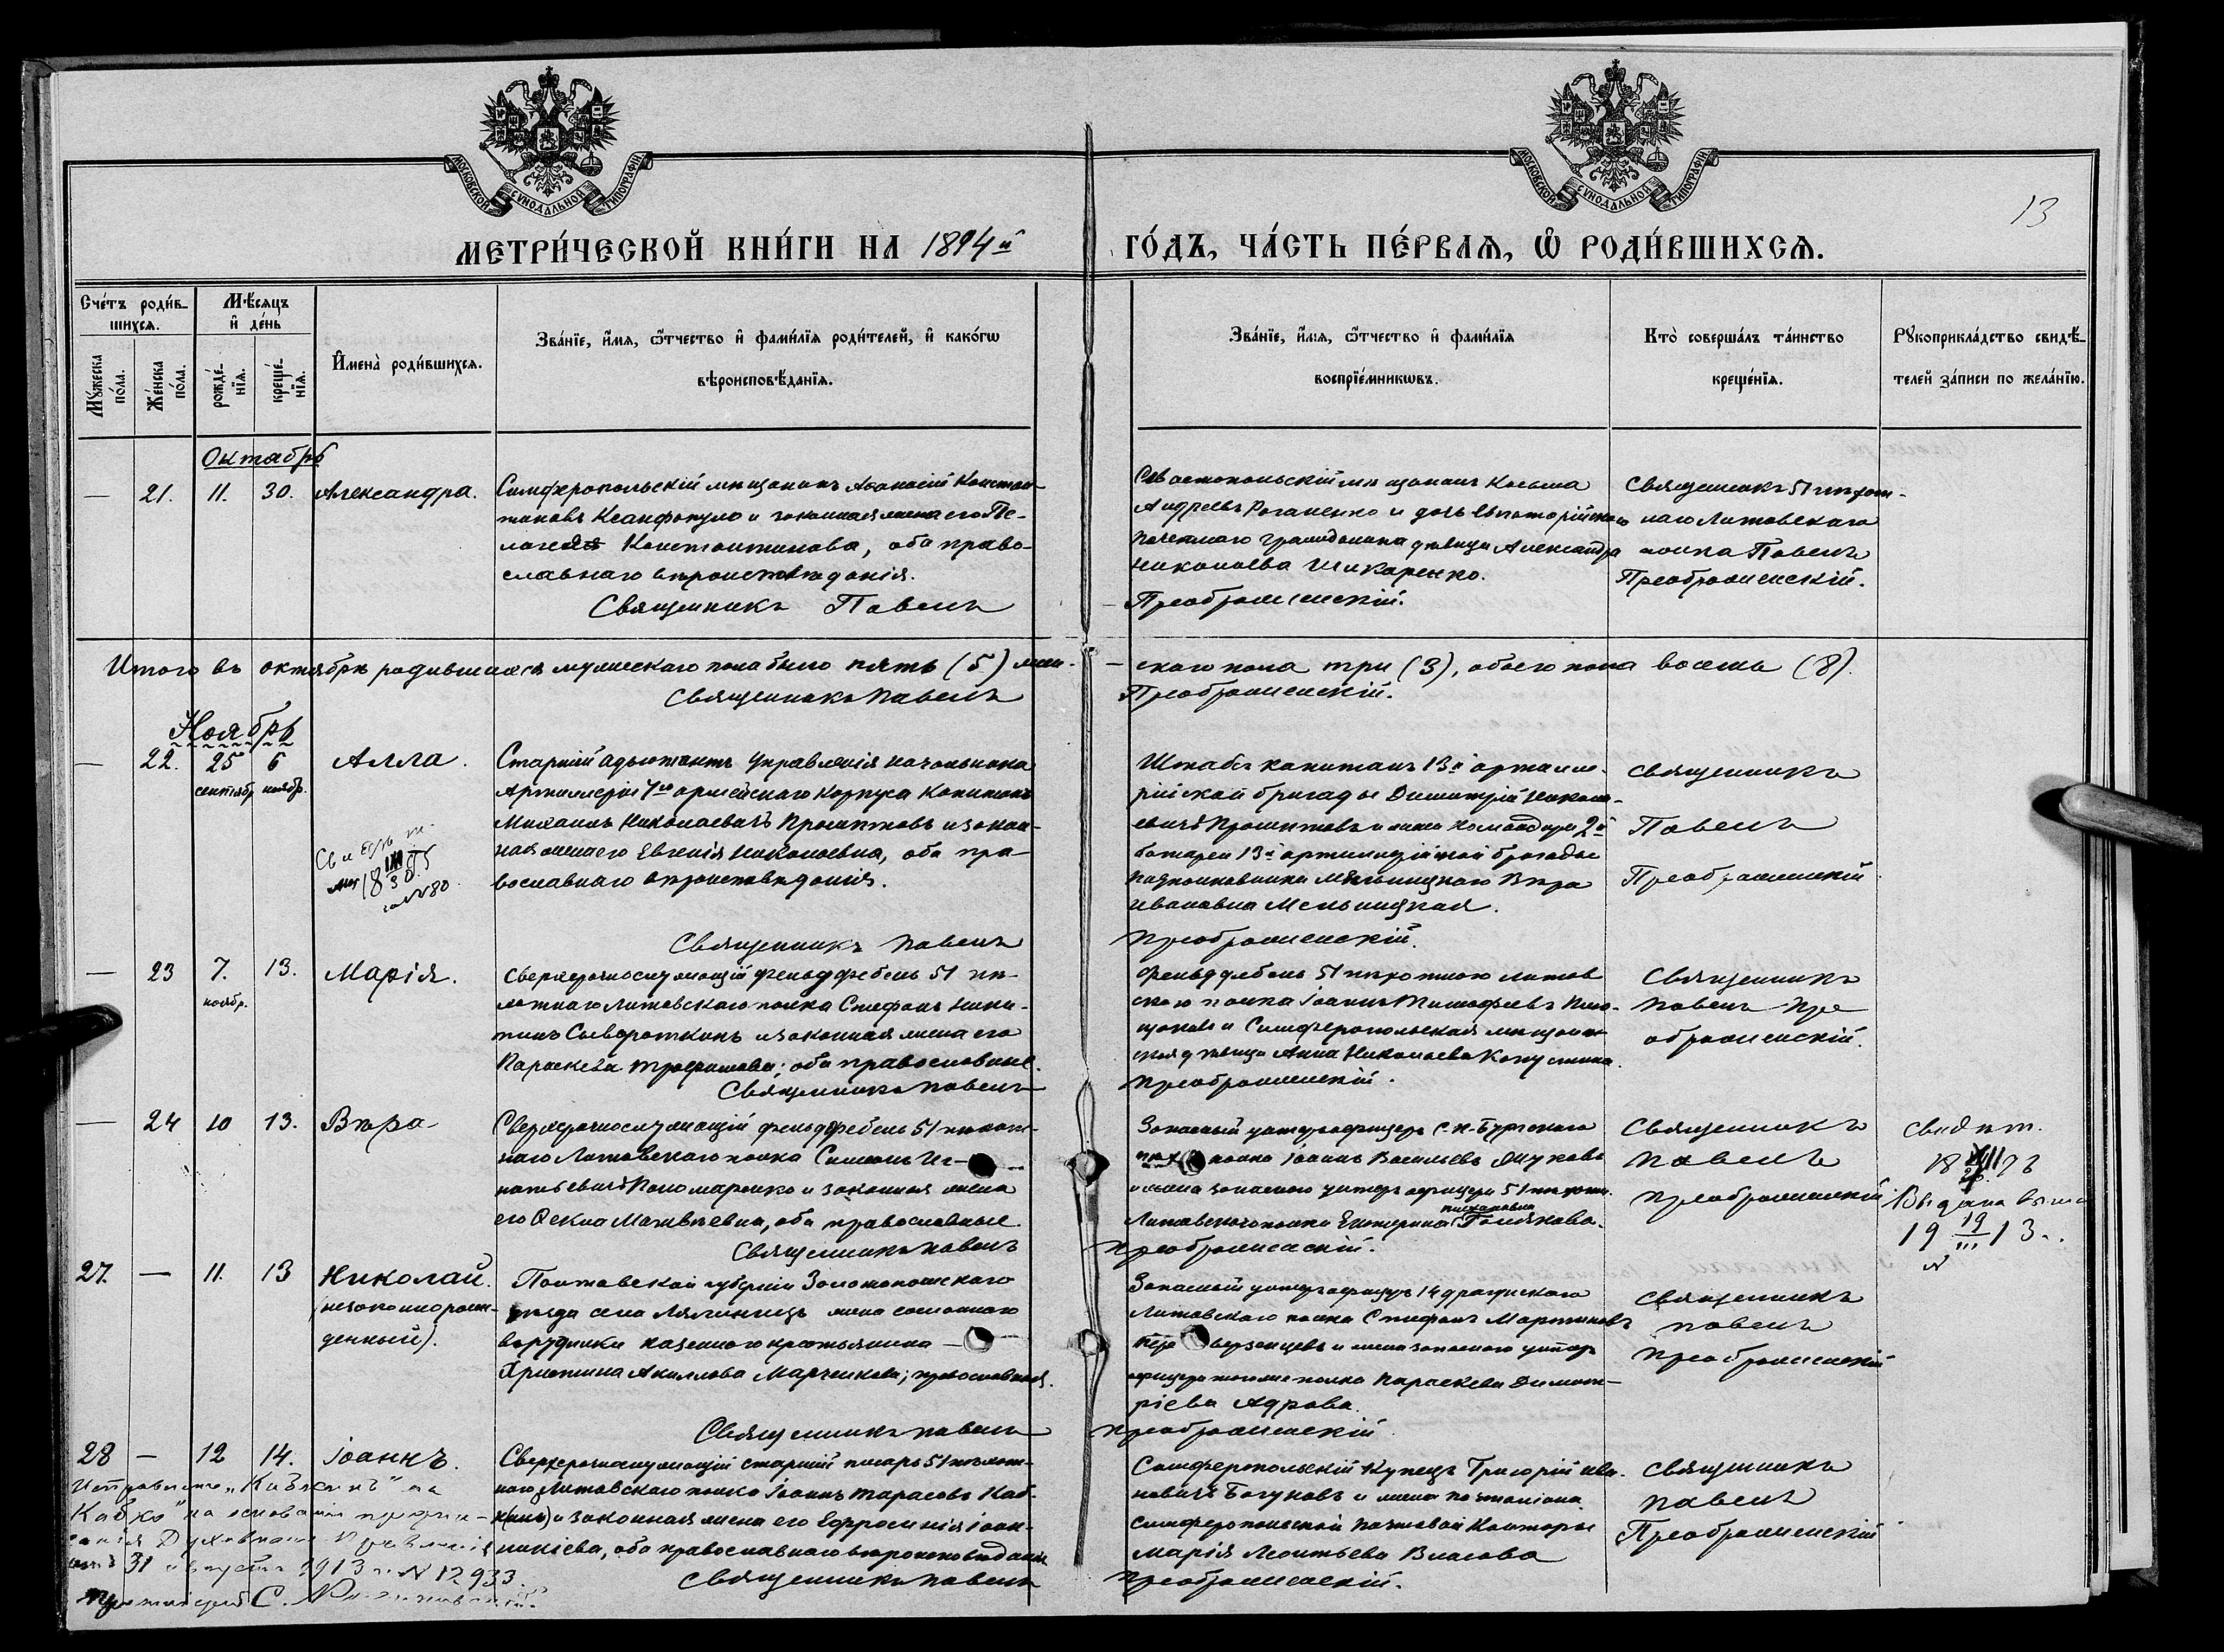 МОСКОВСКОЙ СѴНОДАЛЬНОЙ ТИПОГРАФІИ
МОСКОВСКОЙ СѴНОДАЛЬНОЙ ТИПОГРАФІИ
13
МЕТРИ́ЧЕСКОЙ КНИ́ГИ НА 1894й ГО́ДЪ, ЧА́СТЬ ПЕ́РВАЯ, Ѽ РОДИ́ВШИХСЯ.
Сче́тъ роди́в-
шихся.
Мѣ́сяцъ
и҆ де́нь
Мꙋ́жеска по́ла.
Же́нска по́ла.
рожде́-
нїѧ.
креще́-
нїѧ.
И҆мена̀ роди́вшихся.
Зва́нїе, и҆́мѧ, ѻ҆́тчество и҆ фами́лїѧ роди́телей, и҆ како́гѡ
вѣроисповѣ́данїѧ.
Зва́нїе, и҆́мѧ, ѻ҆́тчество и҆ фами́лїѧ
воспрїе́мникѡвъ.
Кто̀ соверша́лъ та́инство
креще́нїѧ.
Рꙋкоприкла́дство свидѣ́-
телей за́писи по жела́нїю.
Октябрь
— 21. 11. 30. Александра.
Симферопольскій мѣщанинъ Аѳанасій Констан-
тиновъ Ксанфопуло и законная жена его Пе-
лагея Константинова, оба право-
славнаго вѣроисповѣданія.
Священникъ Павелъ
Севастопольскій мѣщанинъ Косьма
Андреевъ Роганенко и дочь Евпаторійскаго
почетнаго гражданина дѣвица Александра
Николаева Шикаренко.
Преображенскій.
Священникъ 51 пѣхот-
наго Литовскаго
полка Павелъ
Преображенскій.
Итого въ октябрѣ родившихся мужескаго пола было пять (5) жен-
скаго пола три (3), обоего пола восемь (8).
Священникъ Павелъ
Преображенскій.
Ноябрь
— 22. 25 6 Алла.
сентябр. ноябр.
Старшій адъютантъ Управленія начальника
Артиллеріи 7го армейскаго корпуса Капитанъ
Михаилъ Николаевичъ Промптовъ и закон-
ная жена его Евгенія Николаевна, оба пра-
вославнаго вѣроисповѣданія.
Священникъ Павелъ
Штабсъ капитанъ 13й артилле-
рійской бригады Димитрій Никола-
евичъ Промптовъ и жена командира 2й
батареи 13й артиллерійской бригады
подполковника Мельницкаго Вѣра
Ивановна Мельницкая.
Преображенскій.
Священникъ
Павелъ
Преображенскій
№ 80
— 23 7. 13. Марія.
ноябр.
Сверхсрочнослужащій фельдфебель 51 пѣ-
хотнаго Литовскаго полка Стефанъ Ники-
тинъ Сывороткинъ и законная жена его
Параскева Трофимова; оба православные.
Священникъ Павелъ
Фельдфебель 51 пѣхотнаго Литов-
скаго полка Іоаннъ Тимофеевъ
и Симферопольская мѣщан-
ская дѣвица Анна Николаева Капустина.
Преображенскій.
Священникъ
Павелъ Пре-
ображенскій.
— 24 10 13. Вѣра
Сверхсрочнослужащій фельдфебель 51 пѣхот-
наго Литовскаго полка Симеонъ Иг-
натьевичъ Пономаренко и законная жена
его Ѳекла Матвѣевна, оба православные
Священникъ Павелъ
Запасный унтеръ-офицеръ С.-П.-Бургскаго
полка Іоаннъ Васильевъ Жуковъ
и жена запаснаго унтеръ офицера 51 пѣхотн.
Литовскаго полка Екатерина Полякова.
Преображенскій.
Священникъ
Павелъ
Преображенскій
Свид.
Выдана
19 19/III 13.
27. — 11. 13 Николай.
(незаконнорож-
денный).
Полтавской губерніи Золотоношскаго
уѣзда села Лялинецъ жена сосланнаго
казеннаго крестьянина —
Христина Акилова Марченкова; православная.
Священникъ Павелъ
Запасный унтеръ-офицеръ 14 драгунскаго
Литовскаго полка Стефанъ Мартиновъ
и жена запаснаго унтеръ
офицера того же полка Параскева Димит-
ріева Адрова.
Преображенскій
Священникъ
Павелъ
Преображенскій
28 — 12 14. Іоаннъ.
Сверхсрочнослужащій старшій писарь 51 пѣхот-
наго Литовскаго полка Іоаннъ Тарасовъ Каб-
и законная жена его Ефросинія Іоан-
никіева, оба православнаго вѣроисповѣданія
Священникъ Павелъ
Симферопольскій Купецъ Григорій Ива-
новичъ Богуновъ и жена почталіона
Симферопольской почтовой Конторы
Марія Леонтьева Власова
Преображенскій.
Священникъ
Павелъ
Преображенскій
на
на основаніи
Духовнаго Правленія
отъ 31 августа 1913 г. № 12933.
Протоіерей С.